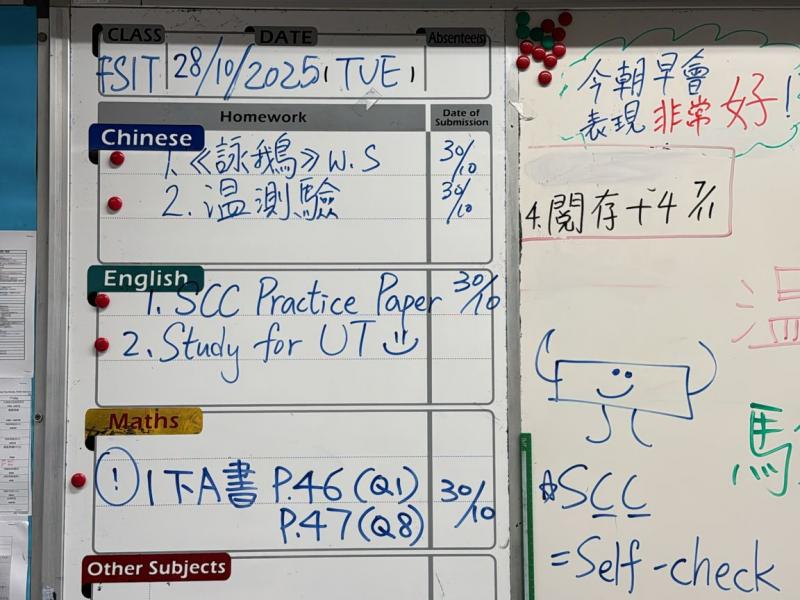 CLASS DATE Absentee(s)
FSIT 28/10/2025 (TUE)
Homework Date of Submission
Chinese
1.《詠鵝》W.S 30/10
2. 温測驗 30/10
English
1. SCC Practice Paper 30/10
2. Study for UT
Maths
! 1下A書 P.46 (Q1) 30/10
P.47 (Q8)
Other Subjects
今朝早會
表現非常好!
4. 閱存+4 7/11
温
馬
☆SCC
=Self-check